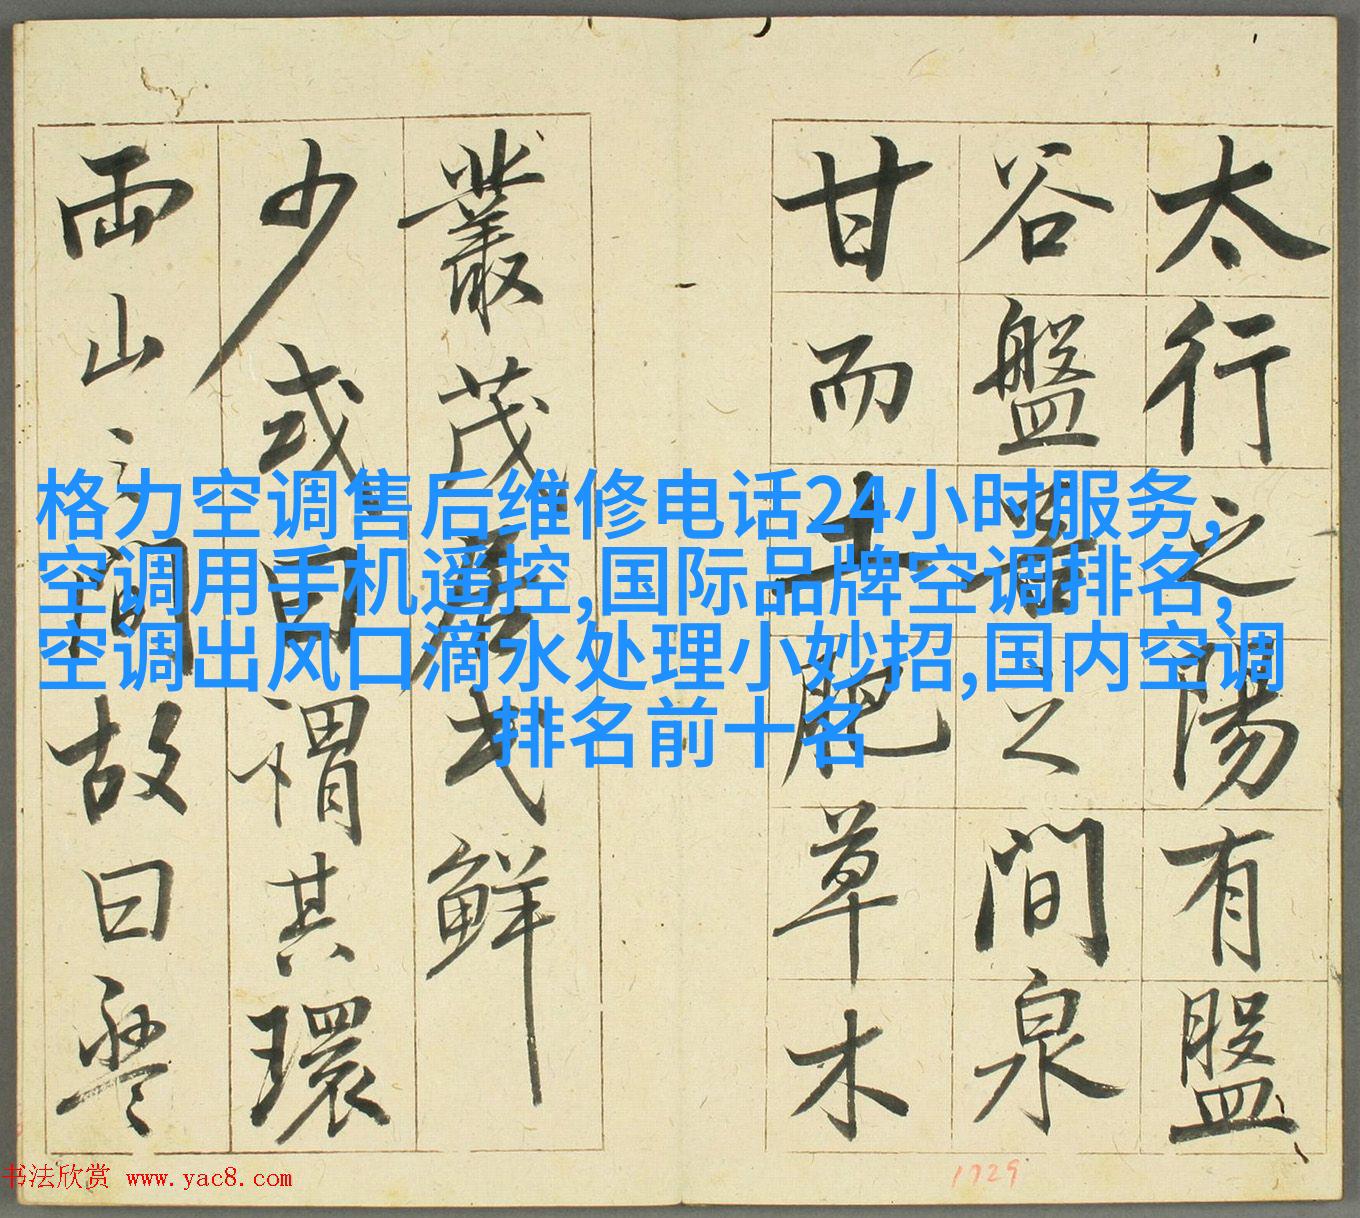 太行之陽有盤
谷盤之間泉
甘而土肥草木
叢茂居民鮮
少或曰謂其環
兩山之間故曰盤
格力空调售后维修电话24小时服务,
空调用手机遥控,国际品牌空调排名,
空调出风口滴水处理小妙招,国内空调
排名前十名
书法欣赏 www.yac8.com
1729